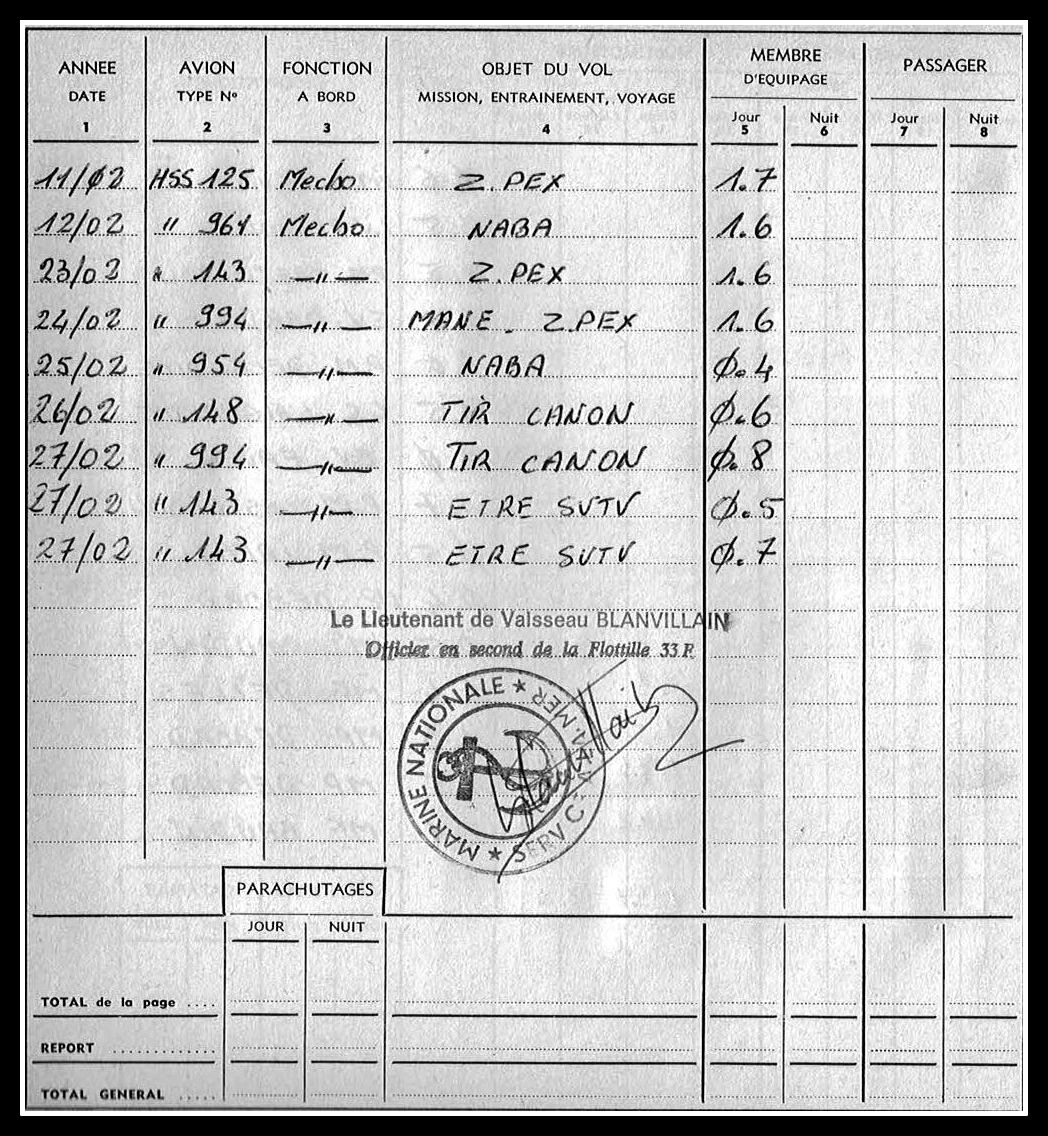 ANNEE AVION FONCTION OBJET DU VOL MEMBRE D'EQUIPAGE PASSAGER
DATE TYPE No A BORD MISSION, ENTRAINEMENT, VOYAGE Jour Nuit Jour Nuit
1 2 3 4 5 6 7 8
11/02 HSS 125 Mecbo Z.PEX 1.7
12/02 " 964 Mecbo NABA 1.6
23/02 " 143 —"— Z.PEX 1.6
24/02 " 994 —"— MANE. Z.PEX 1.6
25/02 " 954 —"— NABA Ø.4
26/02 " 148 —"— TIR CANON Ø.6
27/02 " 994 —"— TIR CANON Ø.8
27/02 " 143 —"— ETRE SVTV Ø.5
27/02 " 143 —"— ETRE SVTV Ø.7
Le Lieutenant de Vaisseau BLANVILLAIN
Officier en second de la Flottille 33 F.
MARINE NATIONALE
PARACHUTAGES
JOUR NUIT
TOTAL de la page ....
REPORT ............
TOTAL GENERAL .....